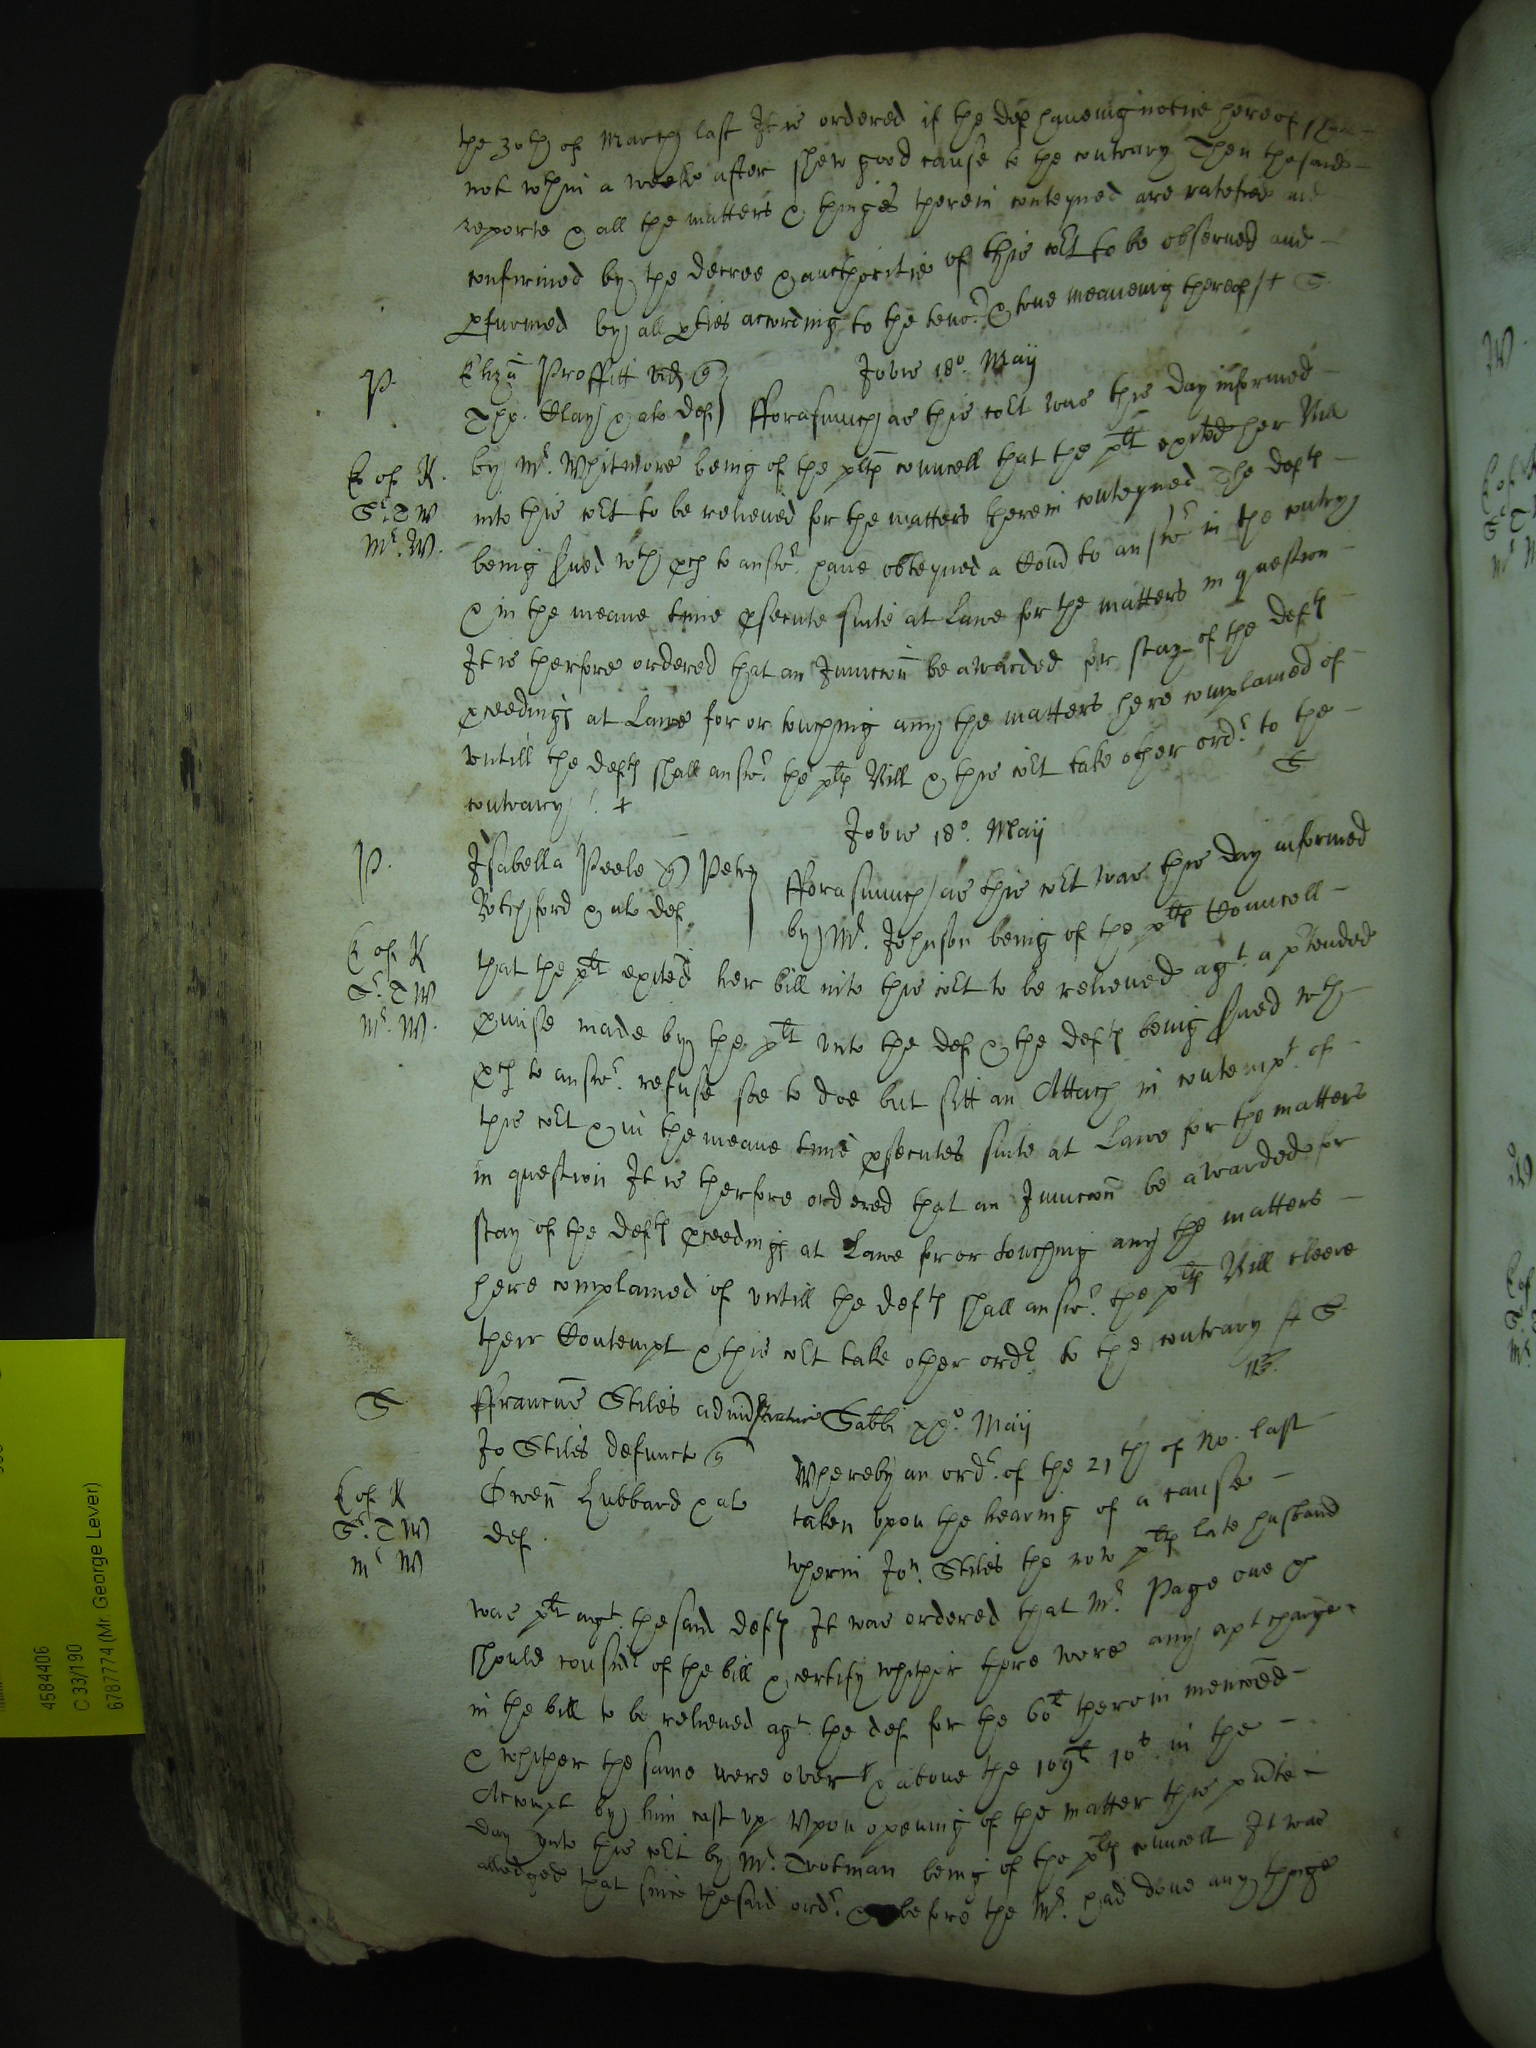 the 30th of March last It is ordered if the def haueing notice hereof shall
not wthin a weeke after shew good cause to the contrary Then the said
reporte & all the matters & thinges therein conteyned are ratefied and
confirmed by the decree & authoritie of this cort to be observed and
pformed by all pties according to the tenor & true meaneing thereof /+ S
P. Eliza Proffitt vid q Jovis 18o. Maij
Tho. Clay & al def fforasmuch as this cort was this day informed
E of K. by Mr. Whitmore being of the pltes councell that the plt exited her Bill
Sr. T W into this cort to be relieved for the matters therein conteyned The defts
Mr. W. being serued wth pces to answr. haue obteyned a Comd to answr in the contry
& in the meane time psecute suite at Lawe for the matters in question
It is therfore ordered that an Iniunccon be awarded for stay of the defts
pceedings at Lawe for or touching any the matters here complained of
vntill the defts shall answr. the plts Bill & this cort take other ordr. to the
contrary /. + S
Jovis 18o. Maij
P. Isabella Peele q Peter fforasmuch as this cort was this day informed
Botchford & al def by Mr. Johnson being of the plts Councell
E of K that the plt exited her bill into this cort to be relieved agt. a ptended
Sr. T W pmise made by the plt vnto the def & the defts being serued wth
Mr. W. pces to answr. refuse soe to doe but sitt an Attach in contempt. of
this cort & in the meane time psecutes suite at Lawe for the matters
in question It is therfore ordered that an Iniunccon be awarded for
stay of the defts pceedings at Lawe for or touching any the matters
here complained of vntill the defts shall answr. the plts Bill cleere
their Contempt & this cort take other ordr. to the contrary /+ S
S ffrancus Stiles administratrix Sabbi xxo. Maij
Jo Stiles defunct q Whereby an ordr. of the 21th of No. last
E of K Owen Hubbard & al taken vpon the hearing of a cause
Sr. T W def. wherin Jon. Stiles the now plts late husband
Mr W was plt agt. the said defts It was ordered that Mr. Page one &c
should considr of the bill & certify whither there were any apt charge
in the bill to be relieved agt. the def. for the 60l therein menconed
& whither the same were over & aboue the 109l 10s in the
Accompt by him cast vp Vpon opening of the matter this pnte
day vnto this cort by Mr. Trotman being of the plts councell It was
alledged that since the said ordr. & before the Mr. had done any thinge
4584406
C 33/190
6787774 (Mr George Lever)